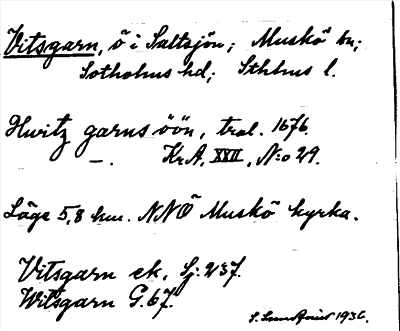 Vitsgarn, ö i Saltsjön; Muskö sn;
Sotholms hd; Sthlms l.
Hwitz garns öön, trol. 1676.
—. KrA, XXII, No 29.
Läge 5,8 km. NNÖ Muskö kyrka.
Vitsgarn ek. Sj. 237.
Witsgarn G. 67.
S. 1936.